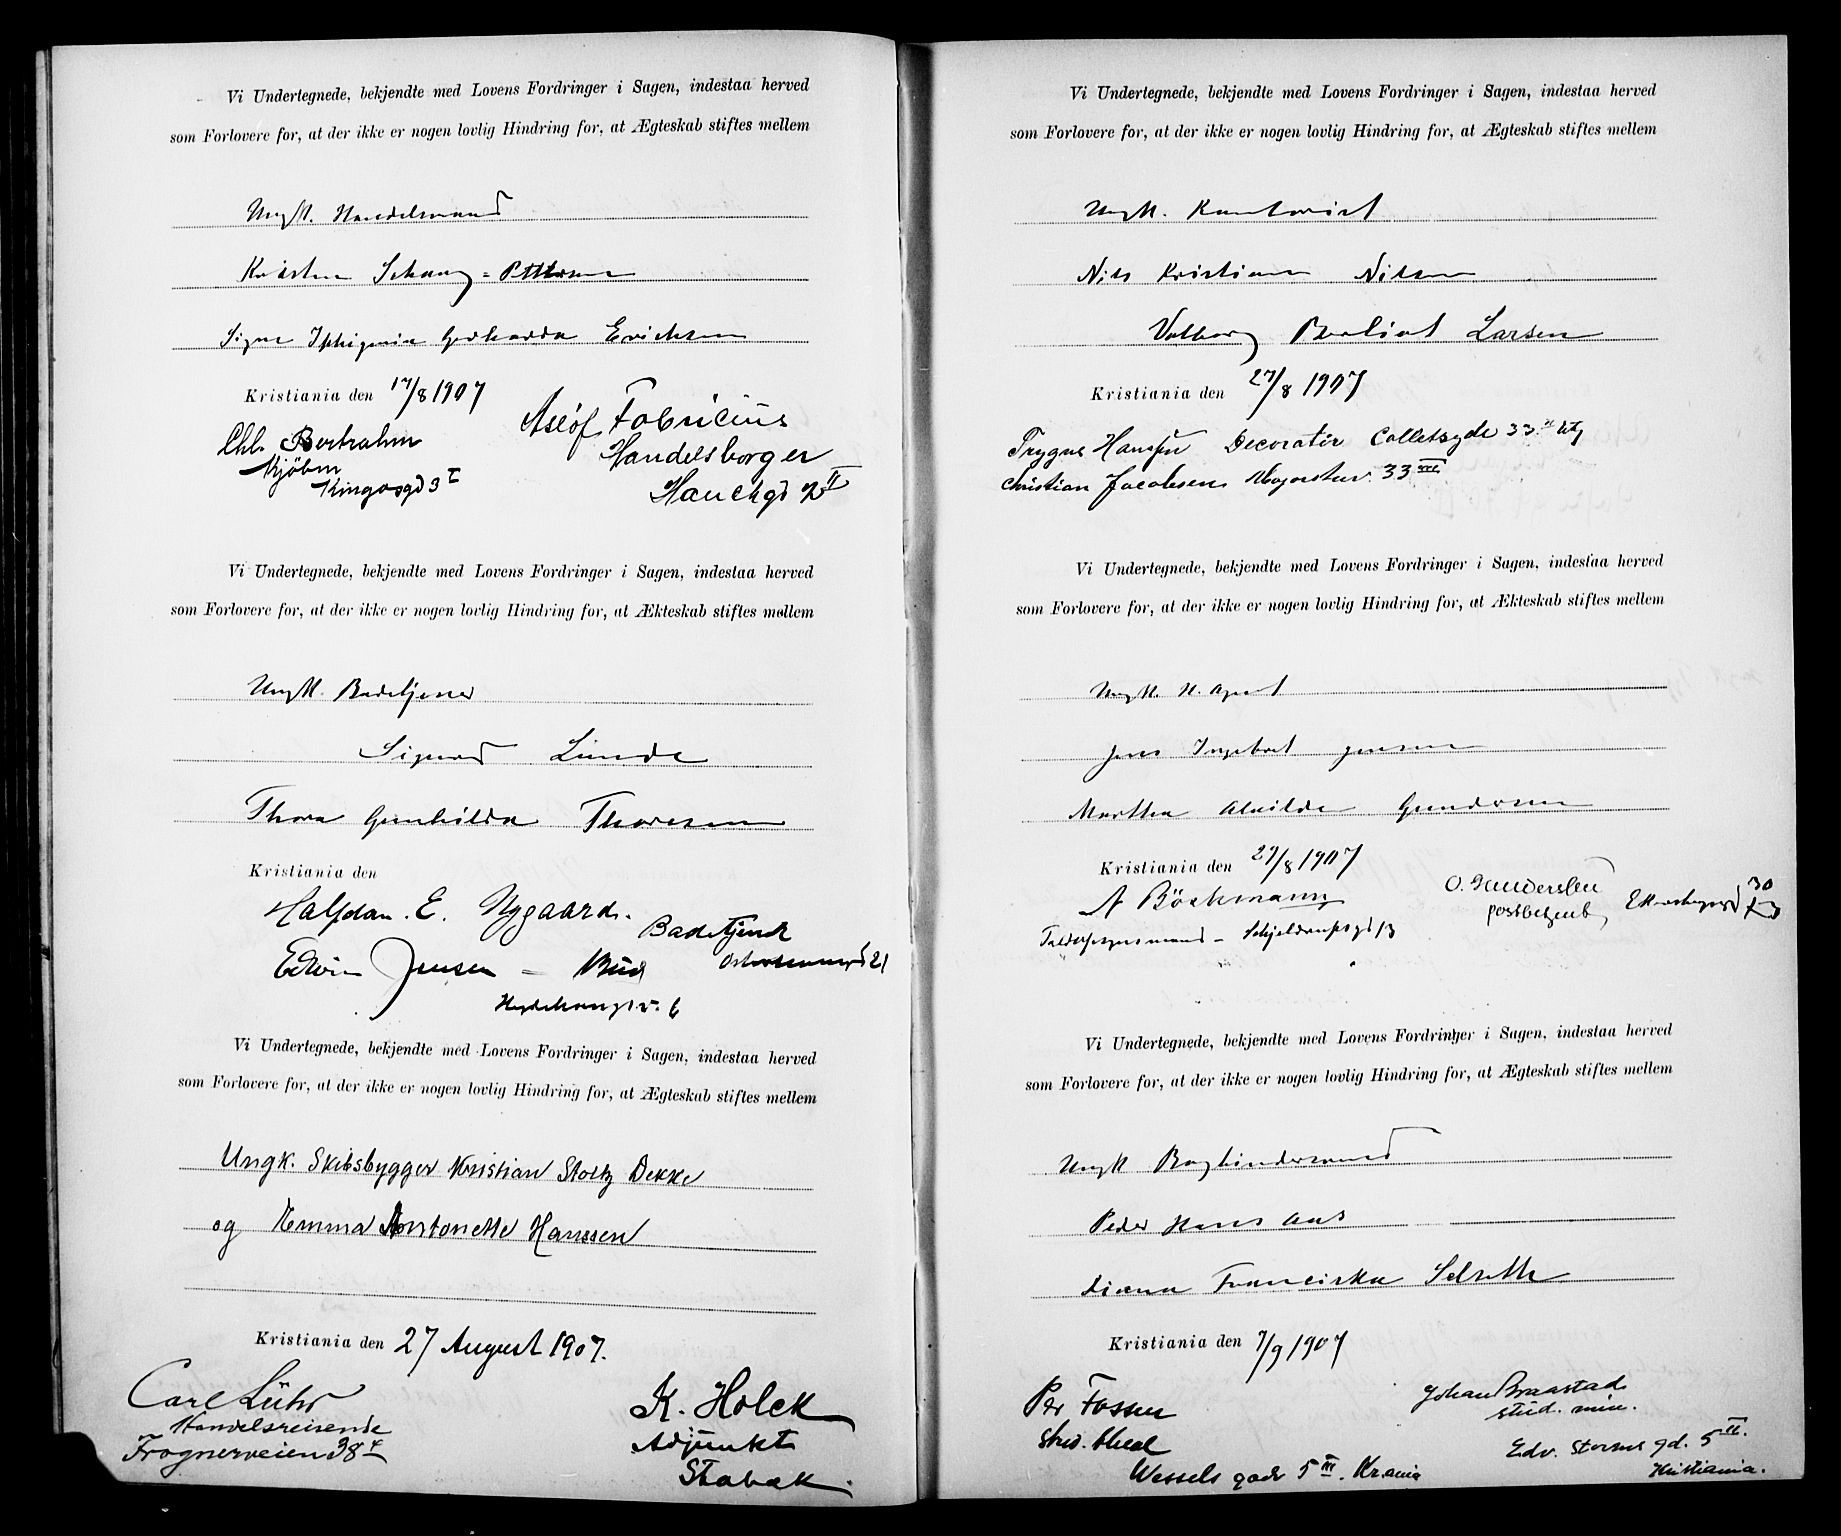 Vi Undertegnede, bekjendte med Lovens Fordringer i Sagen, indestaa herved
som Forlovere for, at der ikke er nogen lovlig Hindring for, at Ægteskab stiftes mellem
Ungk. Handelsmand
Kristen Schoug-Pettersen
Signe Iphigenia Gerharda Erichsen
Kristiania den 17/8 1907
Chr. Bertrahm
Kjöbm
Kingosgd 3 I
Asløf Fabricius
Handelsborger
Hauchgd 2 II
Vi Undertegnede, bekjendte med Lovens Fordringer i Sagen, indestaa herved
som Forlovere for, at der ikke er nogen lovlig Hindring for, at Ækteskab stiftes mellem
Ungk. Badetjener
Sigurd Lunde
Thora Gunhilda Thoresen
Kristiania den
Halfdan. E. Nygaard.
Badetjener
Edvin Jensen - Bud
21
6
Vi Undertegnede, bekjendte med Lovens Fordringer i Sagen, indestaa herved
som Forlovere for, at der ikke er nogen lovlig Hindring for, at Ægteskab stiftes mellem
Ungk. Skibsbygger Kristian Stoltz Dekke
og Emma Antonette Hanssen
Kristiania den 27 August 1907.
Carl Lühr
Handelsreisende
Frognerveien 38 4
K. Holck
Adjunkt
Stabæk.
Vi Undertegnede, bekjendte med Lovens Fordringer i Sagen, indestaa herved
som Forlovere for, at der ikke er nogen lovlig Hindring for, at Ægteskab stiftes mellem
Ungk. Kontorist
Nils Kristian Nilsen
Valborg Bergliot Larsen
Kristiania den 27/8 1907
Trygve Hansen Decoratör Colletsgde 33
Christian Jacobsen Majorstuv. 33 III
Vi Undertegnede, bekjendte med Lovens Fordringer i Sagen, indestaa herved
som Forlovere for, at der ikke er nogen lovlig Hindring for, at Ækteskab stiftes mellem
Ungk. H. Agent
Jens Ingebret Jensen
Martha Alvilde Gundersen
Kristiania den 29/8 1907
A Böckmann
Schjeldrupsgd 13
O. Gundersen
postbetjent
30
Vi Undertegnede, bekjendte med Lovens Fordringer i Sagen, indestaa herved
som Forlovere for, at der ikke er nogen lovlig Hindring for, at Ægteskab stiftes mellem
Ungk Bogbindersvend
Peder Hans Aas
Diana Franciska Selseth
Kristiania den 7/9 1907
Per Fossen
Stud. theol
Wessels gade 5 III. Kr.ania
Johan Braastad
stud. min.
Edv. Storms gd. 5 II.
Kristiania.